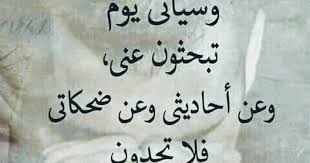 وسيأتى يوم
تبحثون عنى،
وعن أحاديثى وعن ضحكاتى
فلا تجدون